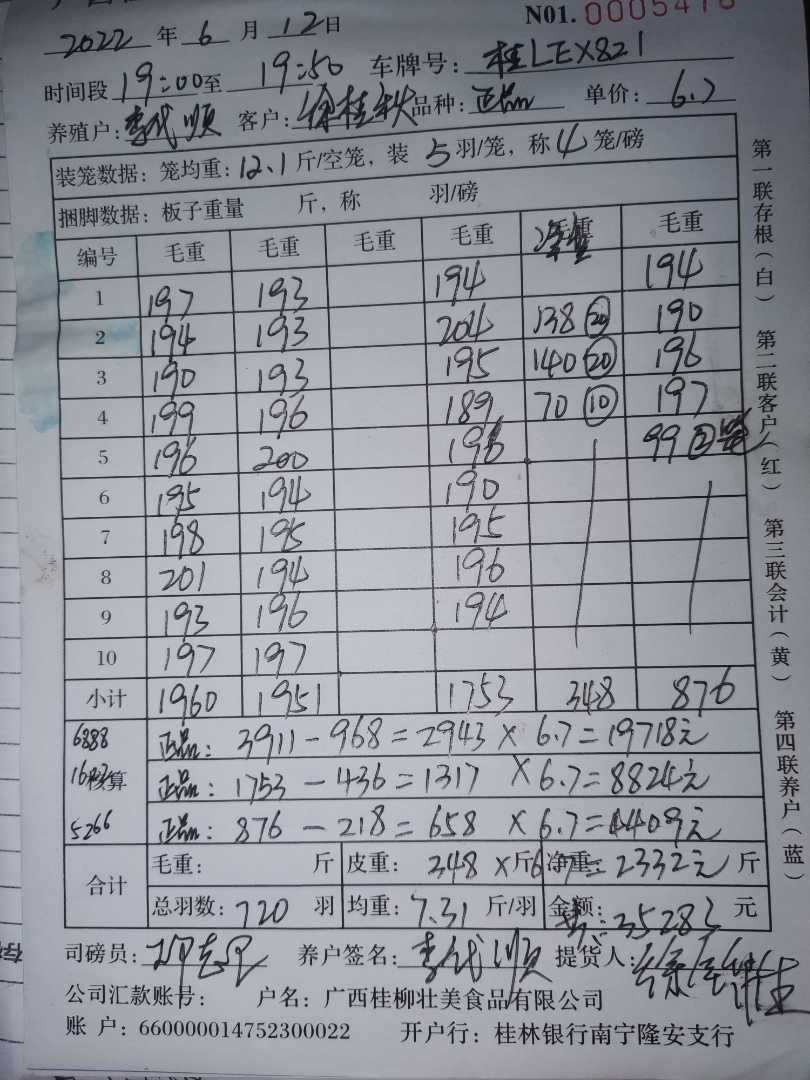 N01. 0005476
2022 年 6 月 12 日
时间段 19:00 至 19:50 车牌号: 桂LEX821
养殖户: 李代顺 客户: 徐桂秋 品种: 正品 单价: 6.7
装笼数据: 笼均重: 12.1 斤/空笼, 装 5 羽/笼, 称 4 笼/磅
捆脚数据: 板子重量 斤, 称 羽/磅
编号 毛重 毛重 毛重 毛重 净重 毛重
1 197 193 194 194
2 194 193 204 138 (20) 190
3 190 193 195 140 (20) 196
4 199 196 189 70 (10) 197
5 196 200 196 99 2笼
6 195 194 190
7 198 195 195
8 201 194 196
9 193 196 194
10 197 197
小计 1960 1951 1753 348 876
6888 正品: 3911-968=2943×6.7=19718元
核算 正品: 1753-436=1317×6.7=8824元
5266 正品: 876-218=658×6.7=4409元
合计 毛重: 斤 皮重: 348×6.7=2332元 斤 净重: 斤
总羽数: 720 羽 均重: 7.31 斤/羽 金额: 共35283 元
司磅员: 养户签名: 李代顺 提货人:
公司汇款账号: 户名: 广西桂柳壮美食品有限公司
账 户: 660000014752300022 开户行: 桂林银行南宁隆安支行
第一联存根(白) 第二联客户(红) 第三联会计(黄) 第四联养户(蓝)